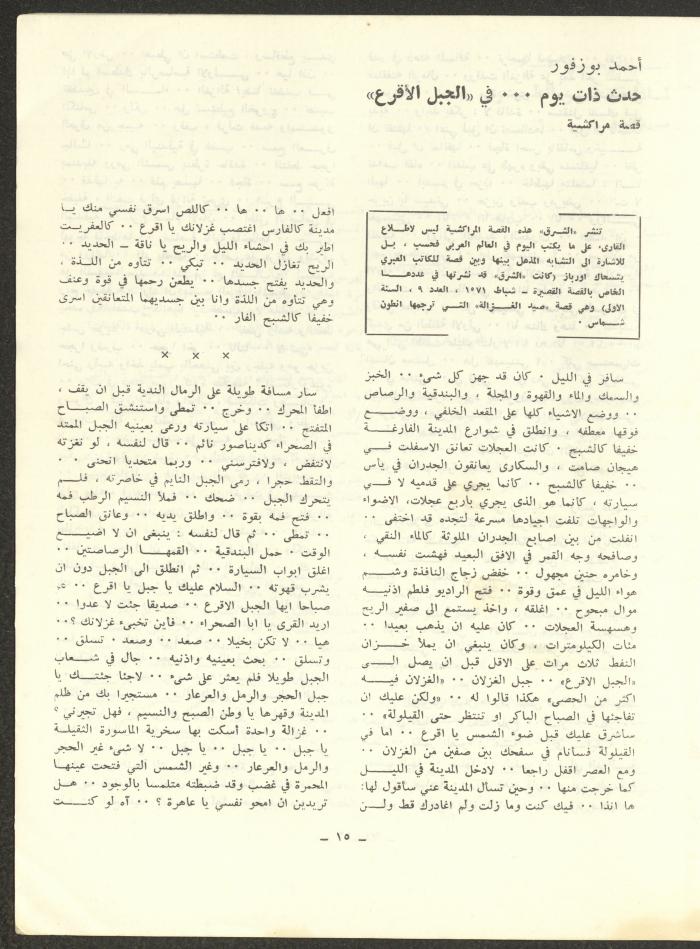 أحمد بوزفور
حدث ذات يوم ٠٠٠ في «الجبل الأقرع»
قصة مراكشية
تنشر «الشرق» هذه القصة المراكشية ليس لاطلاع
القارىء على ما يكتب اليوم في العالم العربي فحسب ، بل
للاشارة الى التشابه المذهل بينها وبين قصة للكاتب العبري
يتسحاك اورباز (كانت «الشرق» قد نشرتها في عددها
الخاص بالقصة القصيرة ــ شباط ١٩٧١ ، العدد ٩ ، السنة
الأولى) وهي قصة «صيد الغزالة» التي ترجمها انطون
شماس ٠
سافر في الليل ٠ كان قد جهز كل شيء ٠٠ الخبز
والسمك والماء والقهوة والمجلة ، والبندقية والرصاص
٠٠ ووضع الاشياء كلها على المقعد الخلفي ، ووضع
فوقها معطفه ، وانطلق في شوارع المدينة الفارغة
خفيفا كالشبح ٠ كانت العجلات تعانق الاسفلت في
هيجان صامت ، والسكارى يعانقون الجدران في يأس
٠٠ خفيفا كالشبح ٠٠ كانما يجري على قدميه لا في
سيارته ، كانما هو الذى يجري باربع عجلات، الاضواء
والواجهات تلفت اجيادها مسرعة لتجده قد اختفى ٠٠
انفلت من بين اصابع الجدران الملوثة كالماء النقي ،
وصافحه وجه القمر في الافق البعيد فهشت نفسه ،
وخامره حنين مجهول ٠٠ خفض زجاج النافذة وشم
هواء الليل في عمق وقوة ٠٠ فتح الراديو فلطم اذنيه
موال مبحوح ٠٠ اغلقه ، واخذ يستمع الى صفير الريح
وهسهسة العجلات ٠٠ كان عليه ان يذهب بعيدا ٠٠
مئات الكيلومترات ، وكان ينبغي ان يملأ خزان
النفط ثلاث مرات على الاقل قبل ان يصل الى
«الجبل الاقرع» ٠٠ جبل الغزلان ٠٠ «الغزلان فيه
اكثر من الحصى» هكذا قالوا له ٠٠ «ولكن عليك ان
تفاجئها في الصباح الباكر او تنتظر حتى القيلولة» ٠٠
ساشرق عليك قبل ضوء الشمس يا اقرع ٠٠ اما في
القيلولة فسانام في سفحك بين صفين من الغزلان ٠٠
ومع العصر اقفل راجعا ٠٠ لادخل المدينة في الليل
كما خرجت منها ٠٠ وحين تسأل المدينة عني ساقول لها:
ها انذا ٠٠ فيك كنت وما زلت ولم اغادرك قط ولن
افعل ٠٠ ها ٠٠ ها ٠٠ كاللص اسرق نفسي منك يا
مدينة كالفارس اغتصب غزلانك يا اقرع ٠٠ كالعفريت
اطير بك في احشاء الليل والريح يا ناقة ــ الحديد ٠٠
الريح تغازل الحديد ٠٠ تبكي ٠٠ تتأوه من اللذة ،
والحديد يفتح جسدها ٠٠ يطعن رحمها في قوة وعنف
وهي تتأوه من اللذة وانا بين جسديهما المتعانقين اسرى
خفيفا كالشبح الفار ٠٠
× × ×
سار مسافة طويلة على الرمال الندية قبل ان يقف ،
اطفأ المحرك ٠٠ وخرج ٠٠ تمطى واستنشق الصباح
المتفتح ٠٠ اتكأ على سيارته ورعى بعينيه الجبل الممتد
في الصحراء كديناصور نائم ٠٠ قال لنفسه ، لو نغزته
لانتفض ، ولافترسني ٠٠ وربما متحديا انحنى ٠٠
والتقط حجرا ، رمى الجبل النايم في خاصرته ، فلم
يتحرك الجبل ٠٠ ضحك ٠٠ فملأ النسيم الرطب فمه
٠٠ فتح فمه بقوة ٠٠ واطلق يديه ٠٠ وعانق الصباح
٠٠ تمطى ٠٠ ثم قال لنفسه : ينبغي ان لا اضيع
الوقت ٠ حمل البندقية ٠٠ القمها الرصاصتين ٠٠
اغلق ابواب السيارة ٠٠ ثم انطلق الى الجبل دون ان
يشرب قهوته ٠٠ السلام عليك يا جبل يا اقرع ٠٠ عم
صباحا ايها الجبل الاقرع ٠٠ صديقا جئت لا عدوا ٠٠
اريد القرى يا ابا الصحراء ٠٠ فاين تخبىء غزلانك ؟٠٠
هيا ٠٠ لا تكن بخيلا ٠٠ صعد ٠٠ وصعد ٠ تسلق ٠٠
وتسلق ٠٠ بحث بعينيه واذنيه ٠٠ جال في شعاب
الجبل طويلا فلم يعثر على شيء ٠٠ لاجئا جئتك يا
جبل الحجر والرمل والعرعار ٠٠ مستجيرا بك من ظلم
المدينة وقهرها يا وطن الصبح والنسيم ، فهل تجيرني ؟
٠٠ غزالة واحدة أسكت بها سخرية الماسورة الثقيلة
يا جبل ٠٠ يا جبل ٠٠ يا جبل ٠٠ لا شيء غير الحجر
والرمل والعرعار ٠٠ وغير الشمس التي فتحت عينها
المحمرة في غضب وقد ضبطته متلمسا بالوجود ٠٠ هل
تريدين ان امحو نفسي يا عاهرة ؟ ٠٠ آه لو كنت
ــ ١٥ ــ